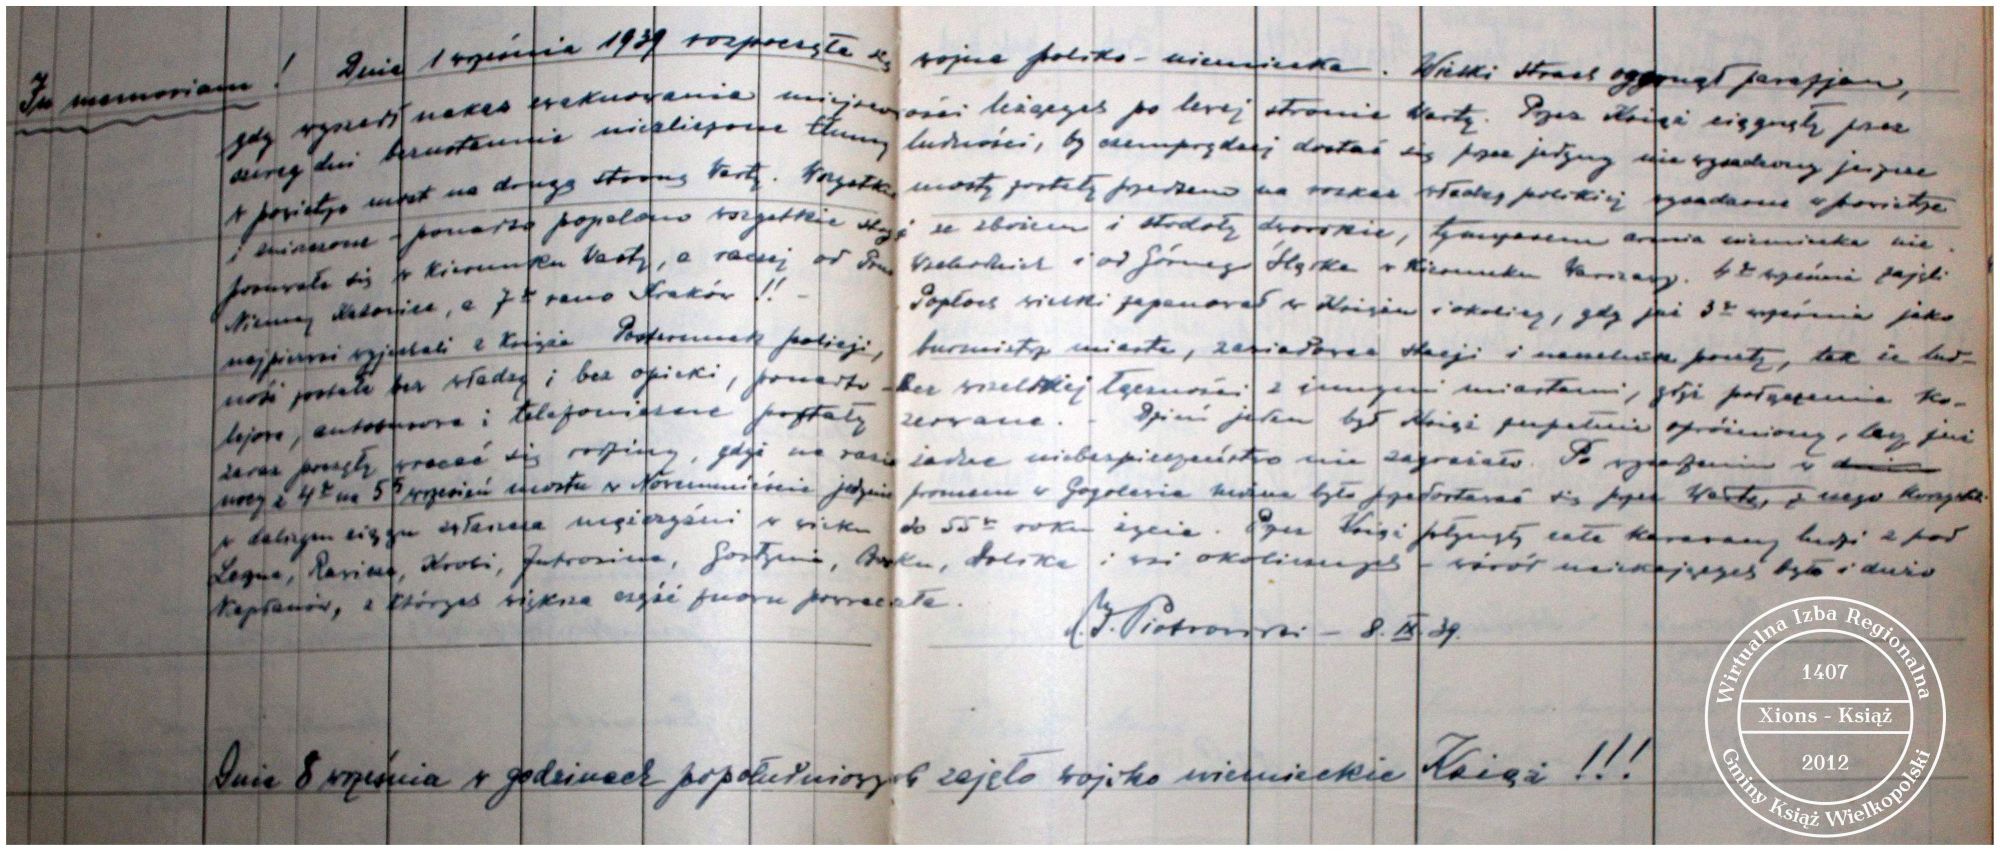 In memoriam! Dnia 1 września 1939 rozpoczęła się wojna polsko-niemiecka. Wielki strach ogarnął parafjan,
gdy wyszedł nakaz ewakuowania miejscowości leżących po lewej stronie Warty. Przez Książ ciągnęły przez
szereg dni bezustannie niezliczone tłumy ludności, by czemprędzej dostać się przez jedyny nie wysadzony jeszcze
w powietrze most na drugą stronę Warty. Wszystkie mosty zostały przedtem na rozkaz władzy polskiej wysadzone w powietrze
i zniszczone - ponadto popalono wszystkie stogi ze zbożem i stodoły dworskie, tymczasem armia niemiecka nie
posuwała się w kierunku Warty, a raczej od Prus Wschodnich i od Górnego Śląska w kierunku Warszawy. 4go września zajęli
Niemcy Katowice, a 7go rano Kraków!! - Popłoch wielki zapanował w Książu i okolicy, gdy już 3go września jako
najpierwsi wyjechali z Książa Posterunek policji, burmistrz miasta, zawiadowca stacji i naczelnik poczty, tak że lud-
ność została bez władzy i bez opieki, ponadto bez wszelkiej łączności z innymi miastami, gdyż połączenia ko-
lejowe, autobusowe i telefoniczne zostały zerwane. - Dzień jeden był Książ zupełnie opróżniony, lecz już
zaraz poczęły wracać się rodziny, gdyż na razie żadne niebezpieczeństwo nie zagrażało. Po wysadzeniu w
nocy z 4go na 5go wrzesień mostu w Nowemmieście jedynie promem w Gogolewie można było przedostawać się przez Wartę, z nego korzystali
w dalszym ciągu zwłaszcza mężczyźni w wieku do 55go roku życia. Przez Książ płynęły całe karawany ludzi z pod
Leszna, Rawicza, Krobi, Jutrosina, Gostynia, Borku, Dolska i wsi okolicznych - wśród uciekających było i dużo
Kapłanów, z których większa część znowu powracała.
J. Piotrowski - 8. IX. 39.
Dnia 8 września w godzinach popołudniowych zajęło wojsko niemieckie Książ!!!
Wirtualna Izba Regionalna
1407
Xions - Książ
2012
Gminy Książ Wielkopolski